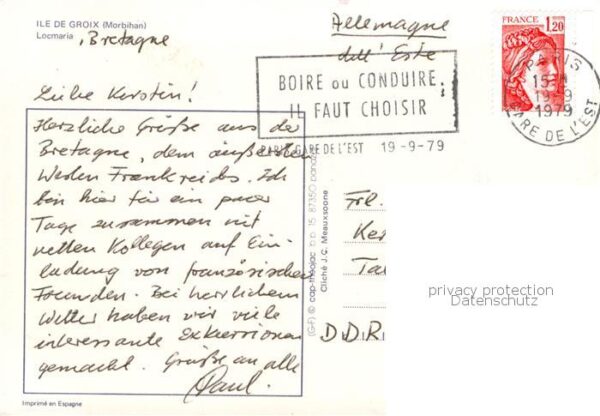 ILE DE GROIX (Morbihan)
Locmaria , Bretagne
Allemagne
dell' Este
FRANCE 1,20
BOIRE ou CONDUIRE.
IL FAUT CHOISIR
PARIS GARE DE L'EST 19-9-79
PARIS
15H
19-9
1979
GARE DE L'EST
Liebe Kerstin!
Herzliche Grüße aus der
Bretagne, dem äußersten
Westen Frankreichs. Ich
bin hier für ein paar
Tage zusammen mit
netten Kollegen auf Ein-
ladung von französischen
Freunden. Bei herrlichem
Wetter haben wir viele
interessante Exkursionen
gemacht. Grüße an alle
Paul.
Frl.
Ke
Ta
D.D.R
(G-F) © cap-théojac b.p. 15 87350 panazol
Cliché J.C. Meauxsoone
privacy protection
Datenschutz
Imprimé en Espagne